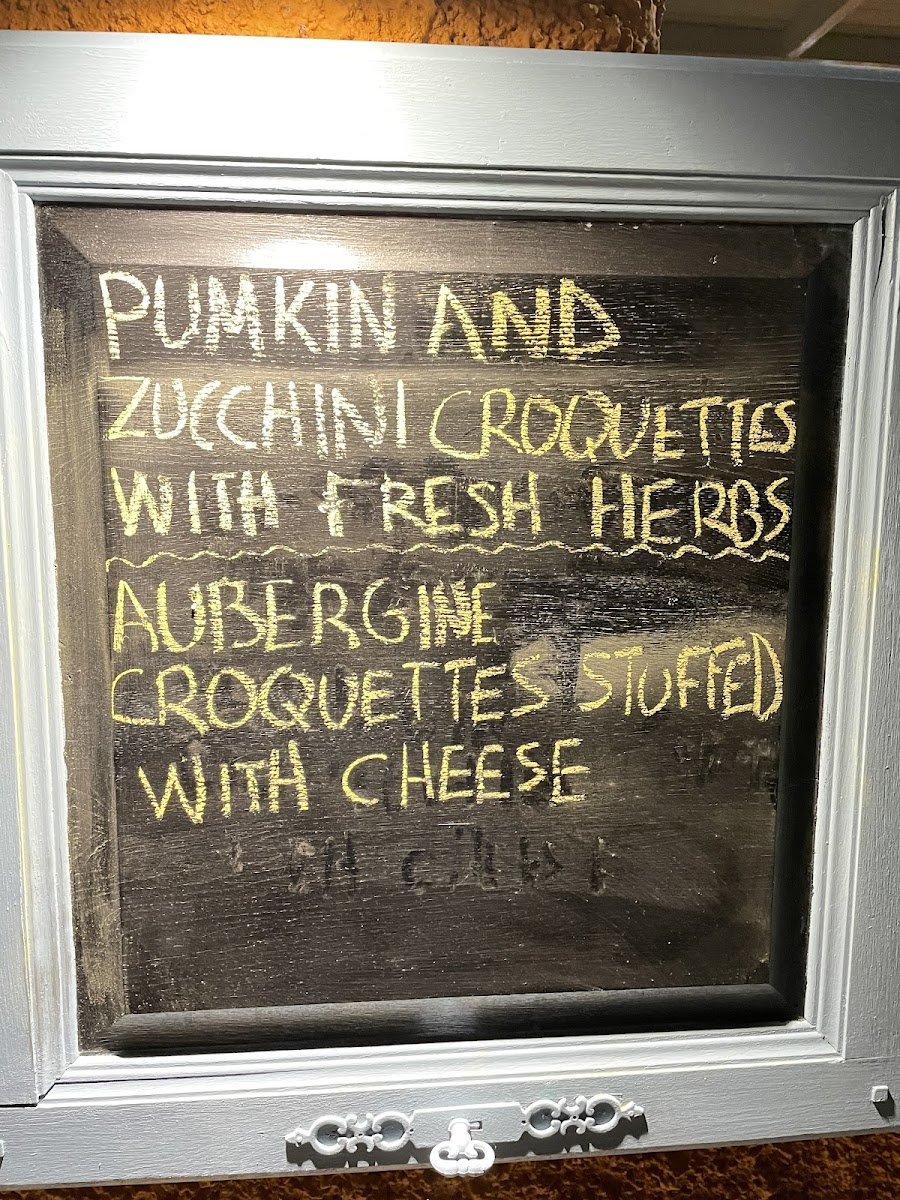 PUMKIN AND
ZUCCHINI CROQUETTES
WITH FRESH HERBS
AUBERGINE
CROQUETTES STUFFED
WITH CHEESE